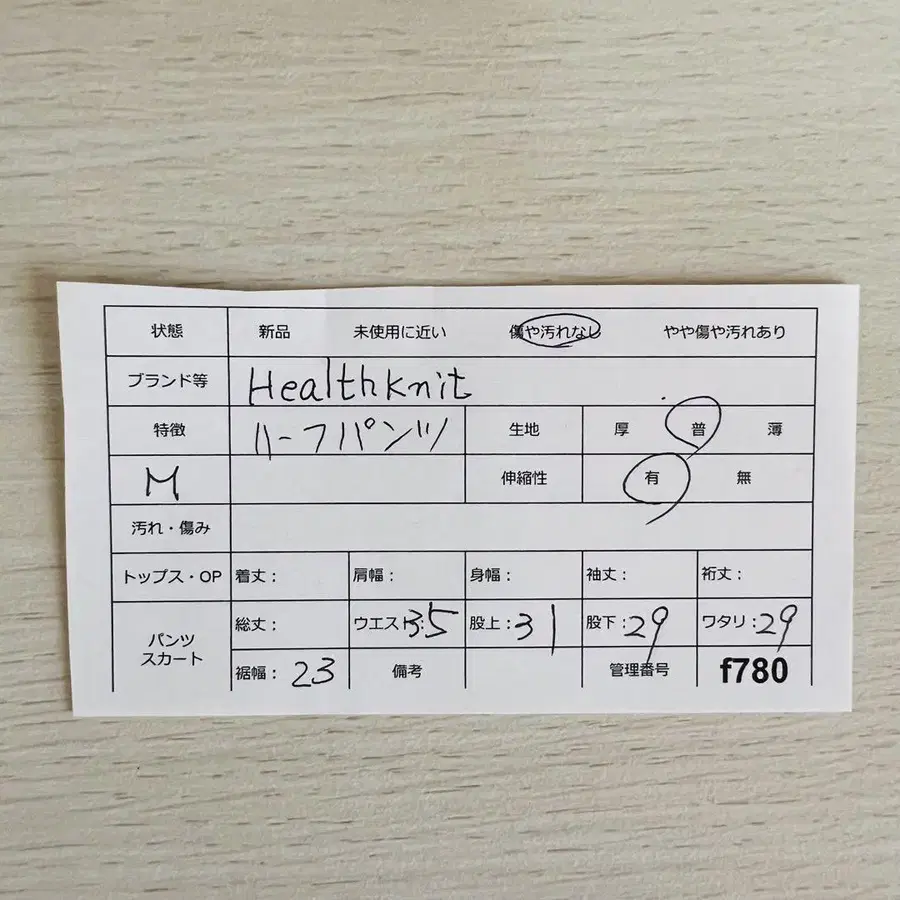 状態 新品 未使用に近い 傷や汚れなし やや傷や汚れあり
ブランド等 Healthknit
特徴 ハーフパンツ 生地 厚 普 薄
M 伸縮性 有 無
汚れ・傷み
トップス・OP 着丈： 肩幅： 身幅： 袖丈： 裄丈：
パンツ スカート 総丈： ウエスト：35 股上：31 股下：29 ワタリ：29
裾幅：23 備考 管理番号 f780